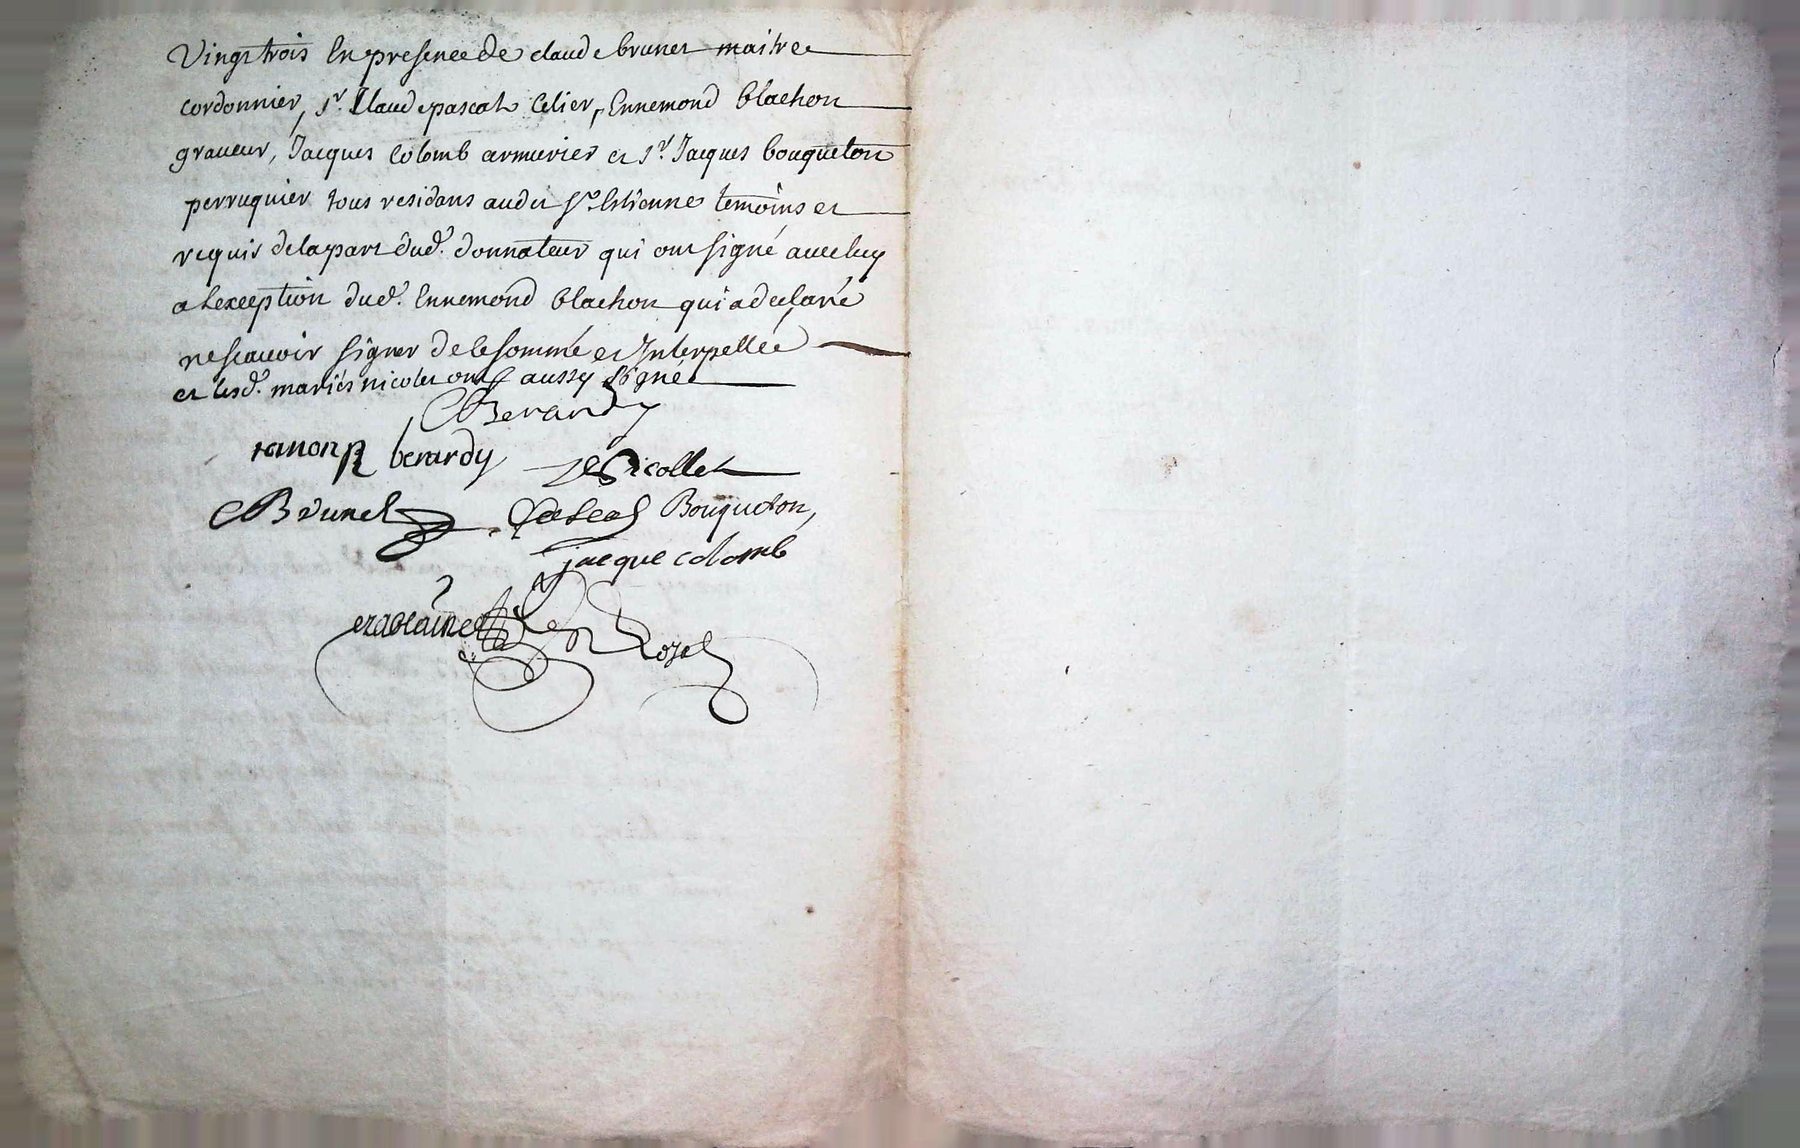 Vingt trois En presence de claude brunet maitre
cordonnier, Sr. Claude pascal Celier, Ennemond blachon
graveur, Jacques Colomb armurier et Sr. Jacques bouqueton
perruquier tous residans audit St. Estienne temoins et
requis de la part dud. donnateur qui ont signé avec luy
a Lexception dud. Ennemond blachon qui a declaré
ne scavoir signer de ce sommé et Interpellée
et lesd. mariés nicolet ont aussy signé
Berardy
berardy
Nicollet
Brunet Pascal Bouqueton,
jacque colomb